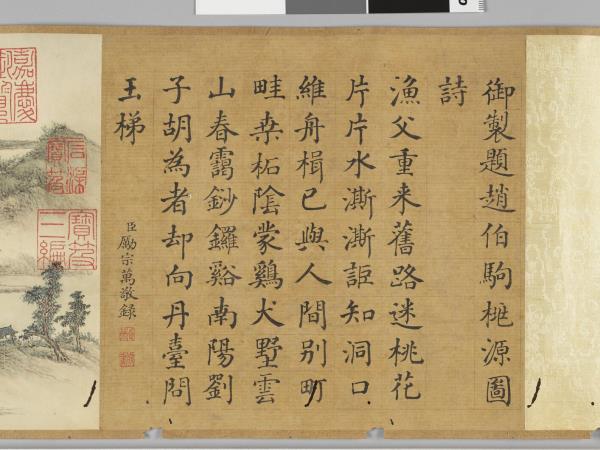 御製題趙伯駒桃源圖
詩
漁父重来舊路迷桃花
片片水澌澌詎知洞口
維舟楫已與人間别町
畦桒柘陰蒙鷄犬墅雲
山春靄鈔鑼谿南陽劉
子胡為者却向丹臺問
玉梯
臣勵宗萬敬録
嘉慶
御覽
石渠
寶笈
寶笈
三編